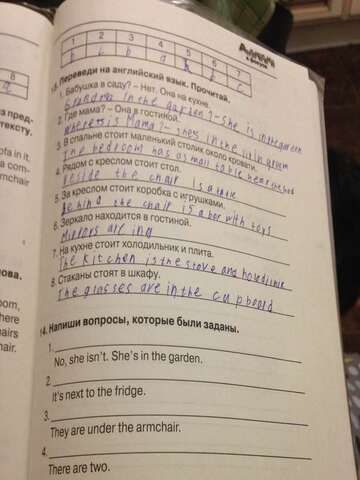 1 2 3 4 5 6 7
b c b a b b c
13. Переведи на английский язык. Прочитай.
1. Бабушка в саду? – Нет. Она на кухне.
Grandma in the garden? - She is in the garden
2. Где мама? – Она в гостиной.
Where is Mama? - She's in the living room
3. В спальне стоит маленький столик около кровати.
The bedroom has a small table near the bed
4. Рядом с креслом стоит стол.
beside the chair is a table
5. За креслом стоит коробка с игрушками.
Behind the chair is a box with toys
6. Зеркало находится в гостиной.
Mirrors are in
7. На кухне стоит холодильник и плита.
The kitchen is the stove and
8. Стаканы стоят в шкафу.
The glasses are in the cupboard
14. Напиши вопросы, которые были заданы.
1.
No, she isn't. She's in the garden.
2.
It's next to the fridge.
3.
They are under the armchair.
4.
There are two.
8
a
из пред-
тексту.
ofa in it.
a com-
mchair
ова.
oom,
here
airs
air.